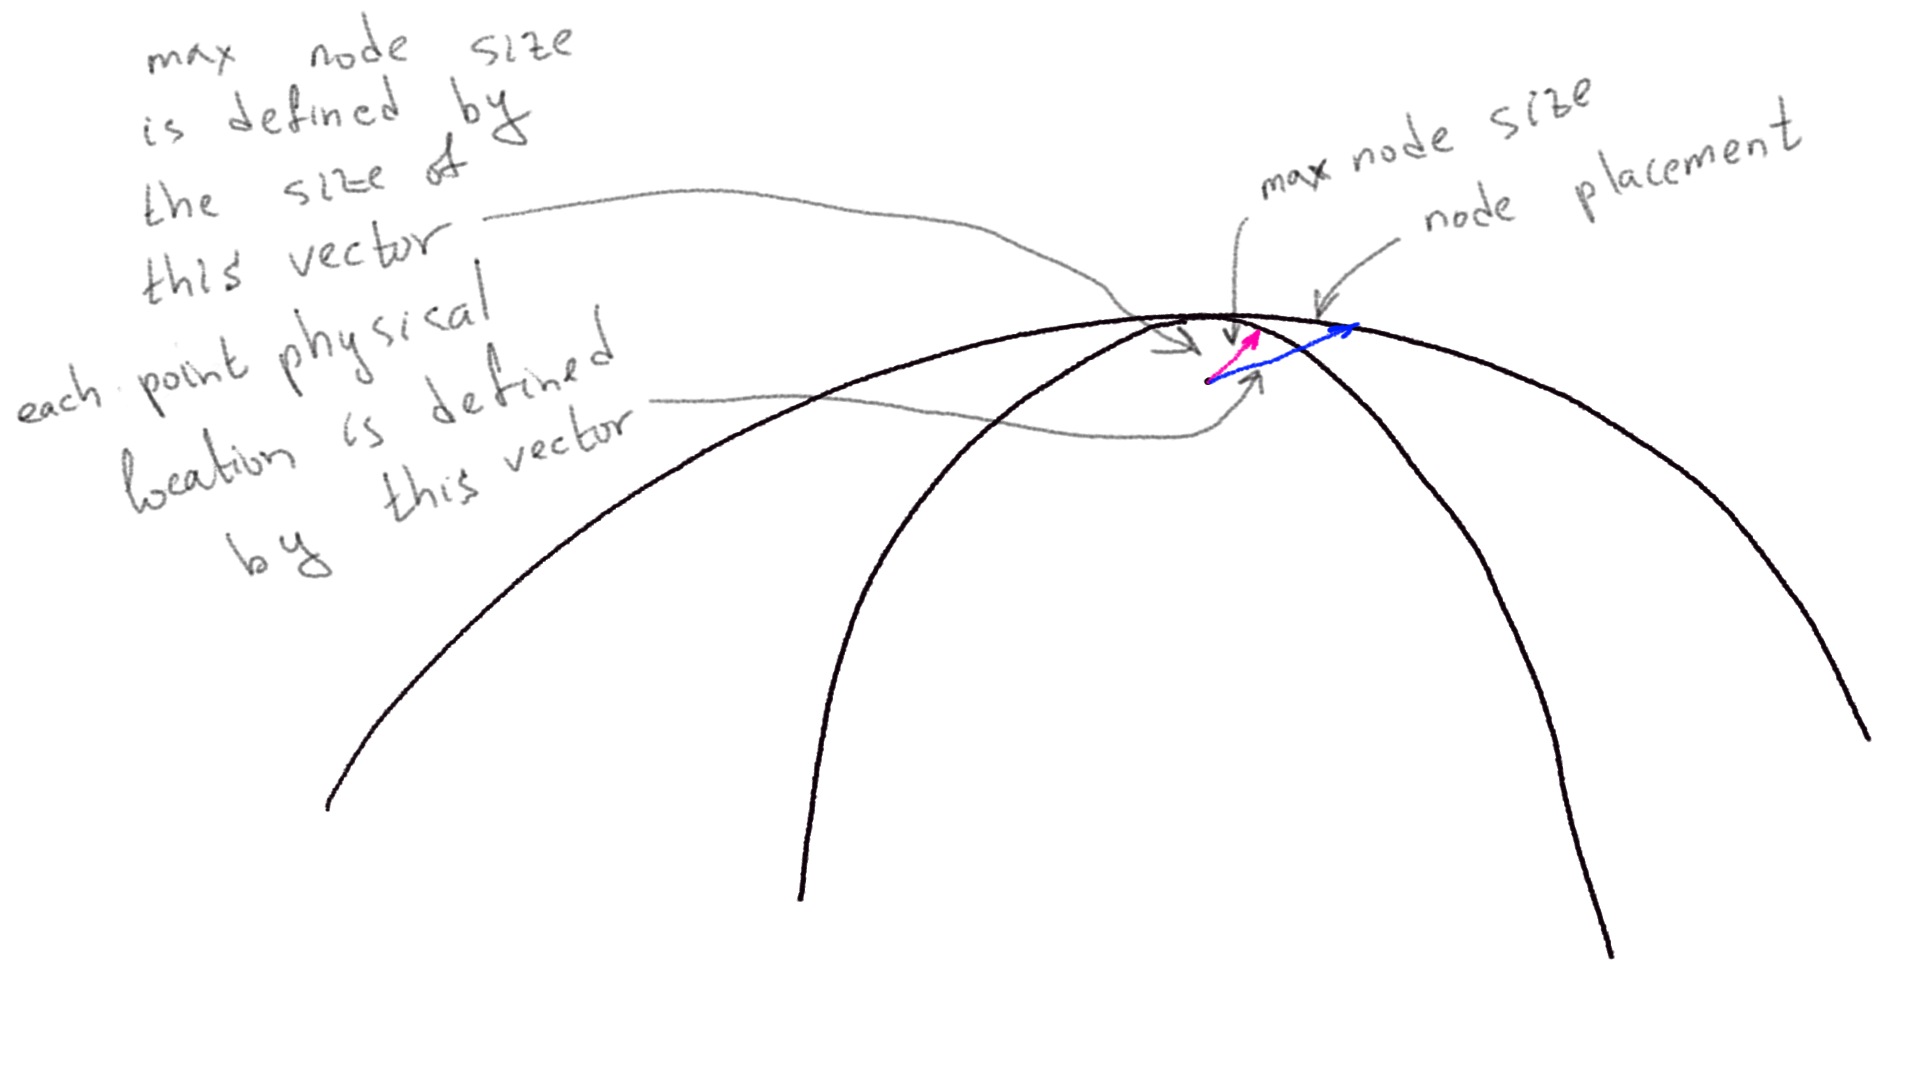 max node size
is defined by
the size of
this vector
each point physical
location is defined
by this vector
max node size
node placement